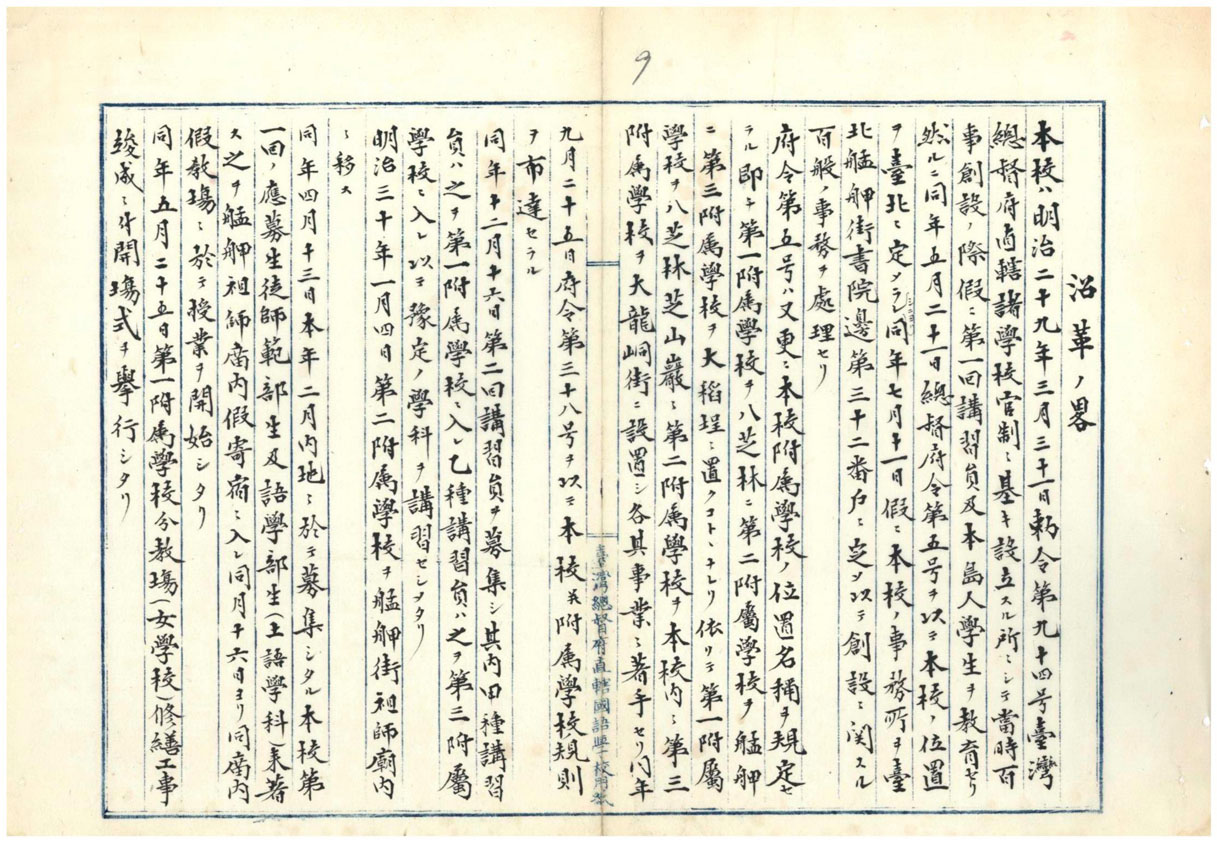 9
沿革ノ畧
本校ハ明治二十九年三月三十一日勅令第九十四号臺灣
總督府直轄諸學校官制ニ基キ設立スル所ニシテ當時百
事創設ノ際假ニ第一回講習員及本島人學生ヲ教育セリ
然ルニ同年五月二十一日總督府令第五号ヲ以テ本校ノ位置
ヲ臺北ニ定メラレ同年七月十一日假ニ本校ノ事務所ヲ臺
北艋舺街書院邊第三十二番戶ニ定メ以テ創設ニ関スル
百般ノ事務ヲ處理セリ
府令第五号ハ又更ニ本校附属學校ノ位置名稱ヲ規定セ
ラル即チ第一附属學校ヲ八芝林ニ第二附屬學校ヲ艋舺
ニ第三附属學校ヲ大稻埕ニ置クコトヽナレリ依リテ第一附屬
學校ヲ八芝林芝山巖ニ第二附属學校ヲ本校内ニ第三
附属學校ヲ大龍峒街ニ設置シ各其事業ニ著手セリ同年
九月二十五日府令第三十八号ヲ以テ本校并附属學校規則
ヲ布達セラル
同年十二月十六日第二回講習員ヲ募集シ其内甲種講習
員ハ之ヲ第一附属學校ニ入レ乙種講習員ハ之ヲ第三附屬
學校ニ入レ以テ豫定ノ學科ヲ講習セシメタリ
明治三十年一月四日第二附属學校ヲ艋舺街祖師廟内
ニ移ス
同年四月十三日本年二月内地ニ於テ募集シタル本校第
一回ノ應募生徒師範部生及語學部生(土語學科)来著
ス之ヲ艋舺祖師廟内假寄宿ニ入レ同月十六日ヨリ同廟内
假教塲ニ於テ授業ヲ開始シタリ
同年五月二十五日第一附属學校分教塲(女學校)修繕工事
竣成ニ付開塲式ヲ擧行シタリ
臺灣總督府直轄國語學校用紙